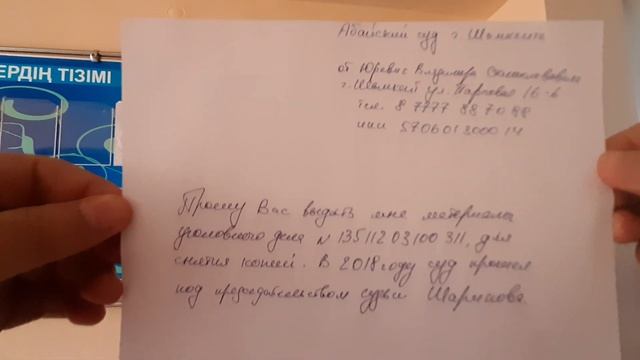 ЕРДІҢ ТІЗІМІ
Абайский суд г. Шымкента
от Юревич Владимира
г. Шымкент ул. Парковая 16-6
тел. 8 7777 88 70 88
иин 570601300014
Прошу Вас выдать мне материалы
уголовного дела N 13511203100311, для
снятия копий. В 2018 году суд прошел
под председательством судьи Шарипова.